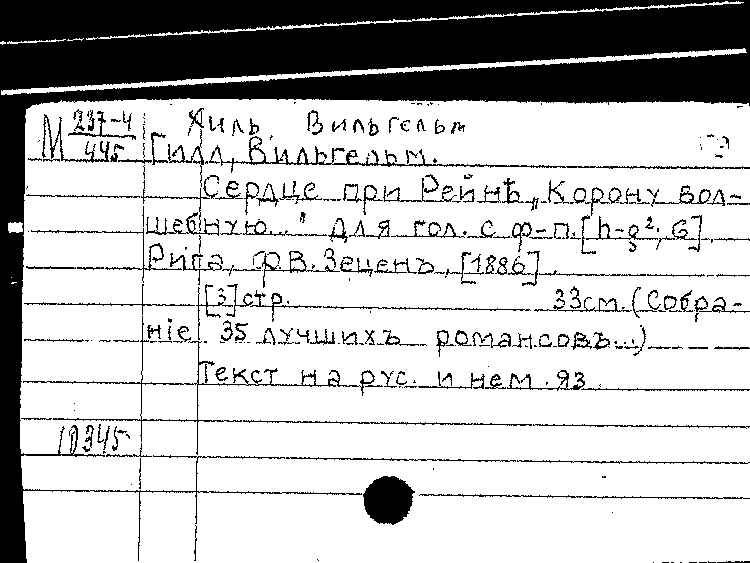 Хиль, Вильгельм
М 237-4/445 Гилл, Вильгельм.
Сердце при Рейнѣ „Корону вол-
шебную..." Для гол. с ф-п. [h-g²; G].
Рига, Ф.В. Зеценъ, [1886].
[3] стр. 33см. (Собра-
ніе 35 лучшихъ романсовъ...)
Текст на рус. и нем. яз.
10345